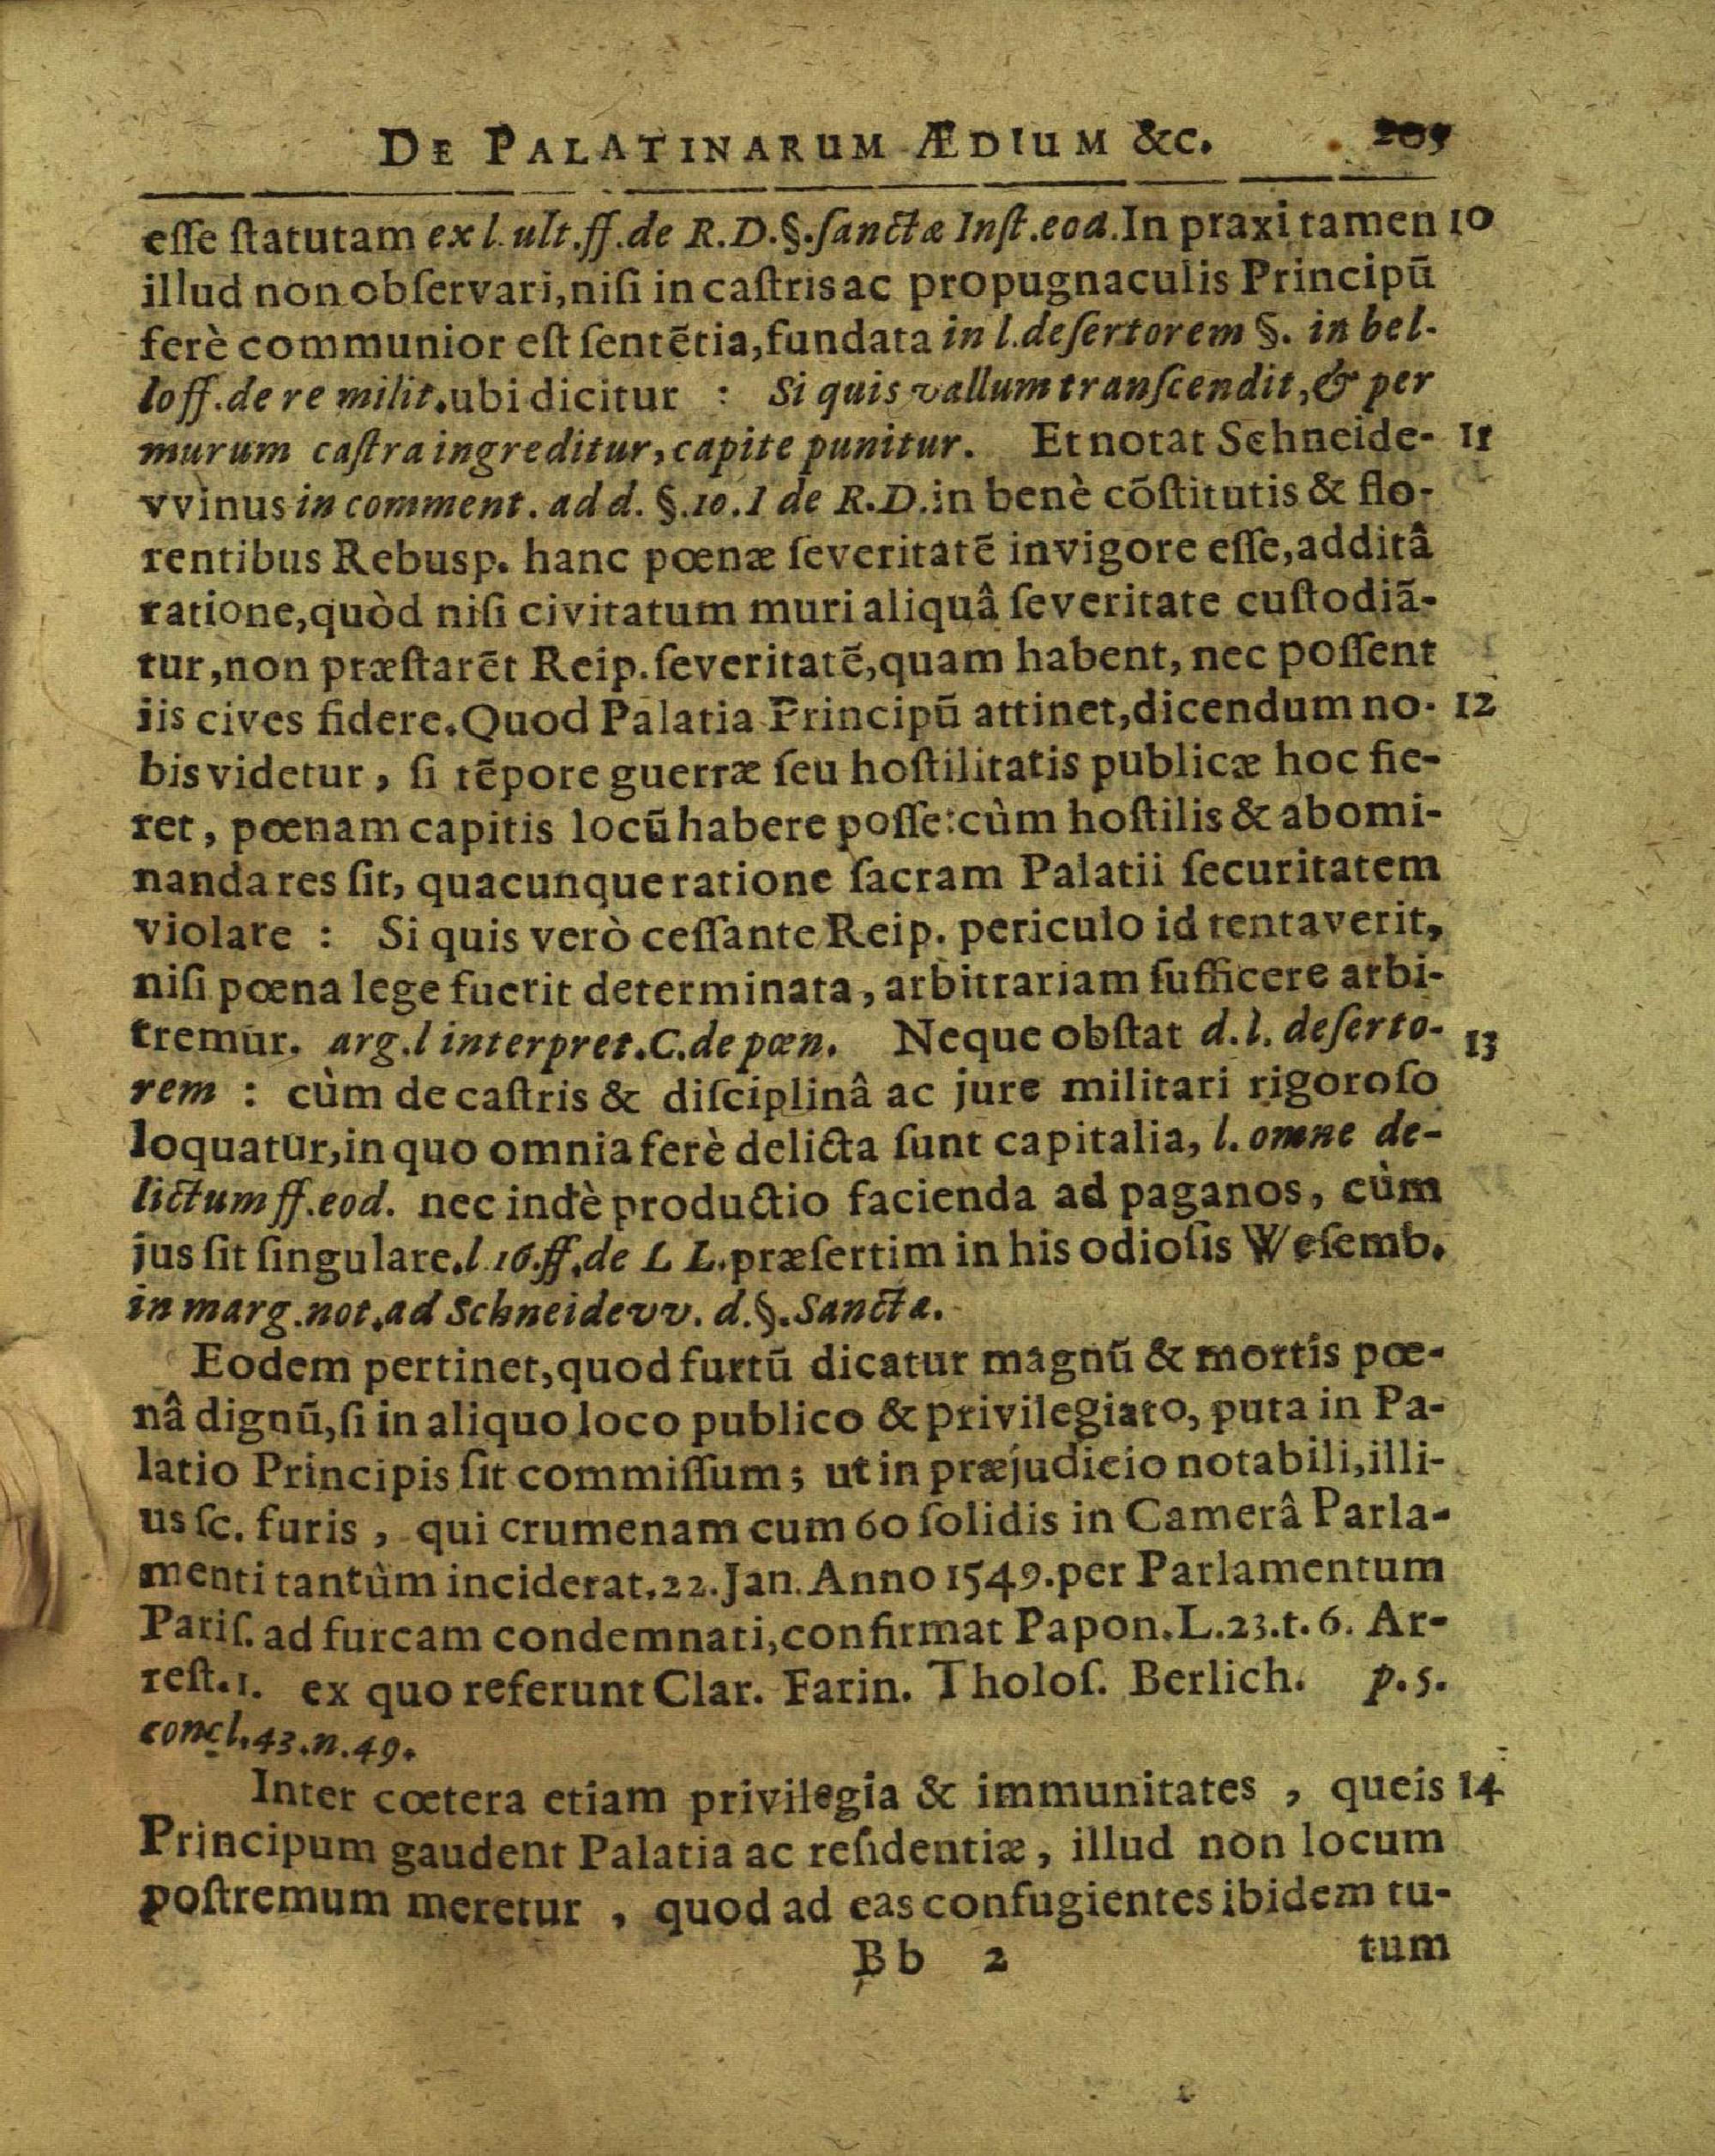 DE PALATINARUM ÆDIUM &c. 205
eſſe ſtatutam ex l. ult. ff. de R. D. §. ſanctæ Inſt. eod. In praxi tamen 10
illud non obſervari, niſi in caſtris ac propugnaculis Principũ
ferè communior eſt ſentẽtia, fundata in l. deſertorem §. in bel-
lo ff. de re milit. ubi dicitur : Si quis vallum tranſcendit, & per
murum caſtra ingreditur, capite punitur. Et notat Schneide- 11
vvinus in comment. ad d. §. 10. I de R. D. in benè cõſtitutis & flo-
rentibus Rebusp. hanc pœnæ ſeveritatẽ in vigore eſſe, additâ
ratione, quòd niſi civitatum muri aliquâ ſeveritate cuſtodiã-
tur, non præſtarẽt Reip. ſeveritatẽ, quam habent, nec poſſent
iis cives fidere. Quod Palatia Principũ attinet, dicendum no- 12
bis videtur, ſi tẽpore guerræ ſeu hoſtilitatis publicæ hoc fie-
ret, pœnam capitis locũ habere poſſe: cùm hoſtilis & abomi-
nanda res ſit, quacunque ratione ſacram Palatii ſecuritatem
violare : Si quis verò ceſſante Reip. periculo id tentaverit,
niſi pœna lege fuerit determinata, arbitrariam ſufficere arbi-
tremur. arg. l interpret. C. de pœn. Neque obſtat d. l. deſerto- 13
rem : cùm de caſtris & diſciplinâ ac jure militari rigoroſo
loquatur, in quo omnia ferè delicta ſunt capitalia, l. omne de-
lictum ff. eod. nec indè productio facienda ad paganos, cùm
jus ſit ſingulare. l. 16. ff. de L L. præſertim in his odioſis Weſemb.
in marg. not. ad Schneidevv. d. §. Sanctæ.
Eodem pertinet, quod furtũ dicatur magnũ & mortis pœ-
nâ dignũ, ſi in aliquo loco publico & privilegiato, puta in Pa-
latio Principis ſit commiſſum; ut in præjudicio notabili, illi-
us ſc. furis, qui crumenam cum 60 ſolidis in Camerâ Parla-
menti tantùm inciderat. 22. Jan. Anno 1549. per Parlamentum
Pariſ. ad furcam condemnati, confirmat Papon. L. 23. t. 6. Ar-
reſt. 1. ex quo referunt Clar. Farin. Tholoſ. Berlich. p. 5.
concl. 43. n. 49.
Inter cœtera etiam privilegia & immunitates, queis 14
Principum gaudent Palatia ac reſidentiæ, illud non locum
poſtremum meretur, quod ad eas confugientes ibidem tu-
Bb 2 tum